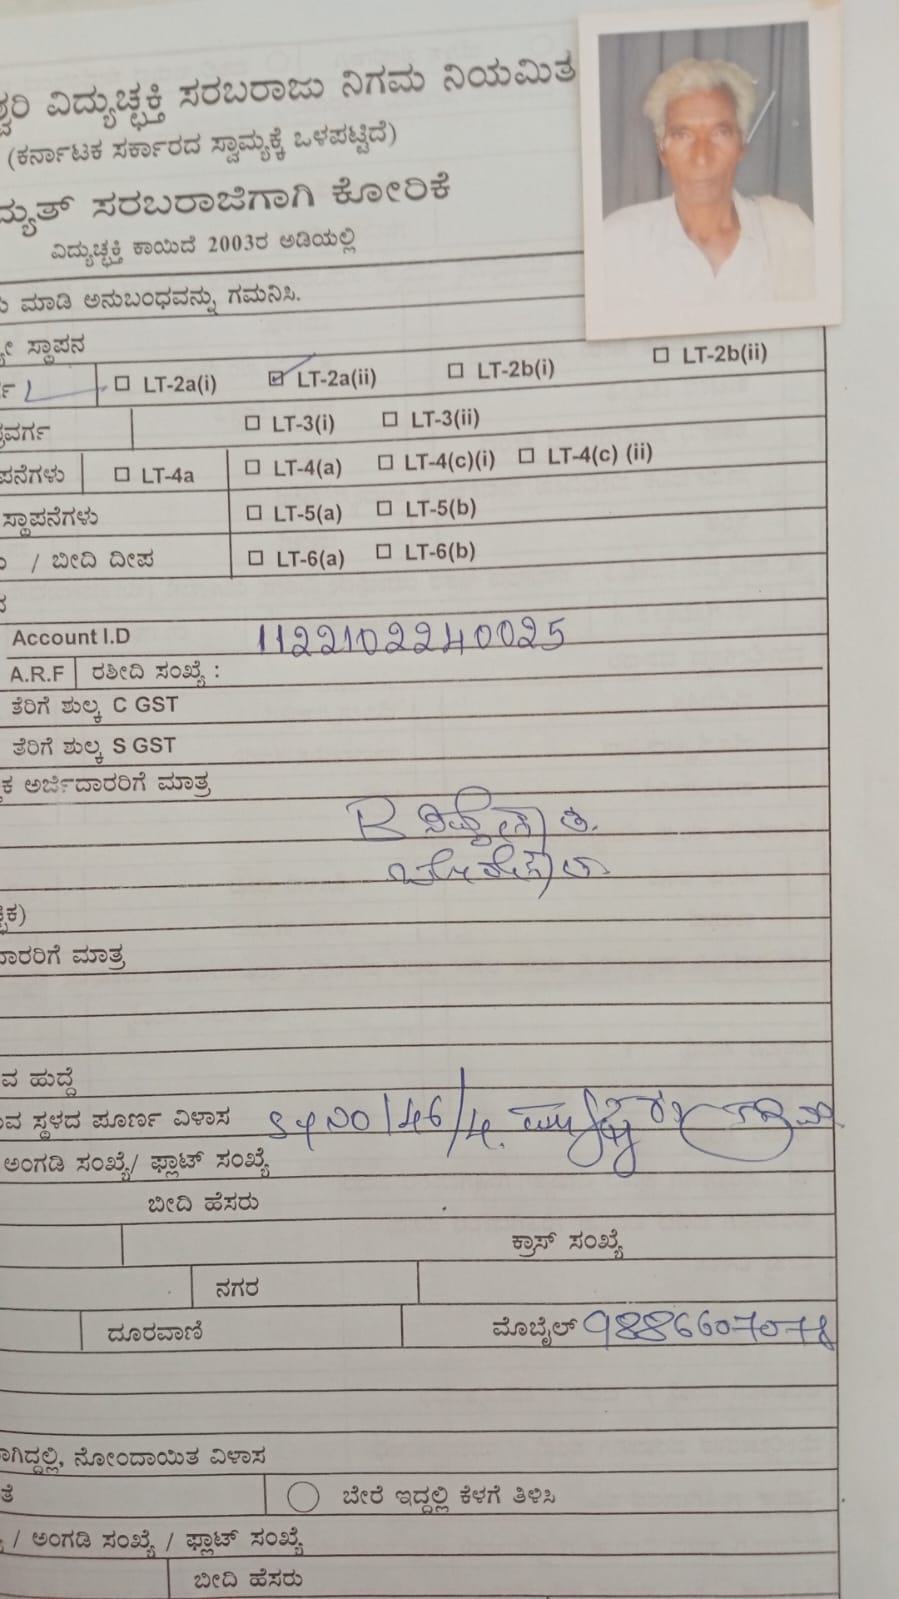 ಶ್ವರಿ ವಿದ್ಯುಚ್ಛಕ್ತಿ ಸರಬರಾಜು ನಿಗಮ ನಿಯಮಿತ
(ಕರ್ನಾಟಕ ಸರ್ಕಾರದ ಸ್ವಾಮ್ಯಕ್ಕೆ ಒಳಪಟ್ಟಿದೆ)
ದ್ಯುತ್ ಸರಬರಾಜಿಗಾಗಿ ಕೋರಿಕೆ
ವಿದ್ಯುಚ್ಛಕ್ತಿ ಕಾಯಿದೆ 2003ರ ಅಡಿಯಲ್ಲಿ
ಮಾಡಿ ಅನುಬಂಧವನ್ನು ಗಮನಿಸಿ.
ಸ್ಥಾಪನ
LT-2a(i) LT-2a(ii) LT-2b(i) LT-2b(ii)
ವರ್ಗ LT-3(i) LT-3(ii)
ಪನೆಗಳು LT-4a LT-4(a) LT-4(c)(i) LT-4(c) (ii)
ಸ್ಥಾಪನೆಗಳು LT-5(a) LT-5(b)
/ ಬೀದಿ ದೀಪ LT-6(a) LT-6(b)
Account I.D 1122102240025
A.R.F ರಶೀದಿ ಸಂಖ್ಯೆ :
ತೆರಿಗೆ ಶುಲ್ಕ C GST
ತೆರಿಗೆ ಶುಲ್ಕ S GST
ಅರ್ಜಿದಾರರಿಗೆ ಮಾತ್ರ
ದಾರರಿಗೆ ಮಾತ್ರ
ವ ಹುದ್ದೆ
ವ ಸ್ಥಳದ ಪೂರ್ಣ ವಿಳಾಸ 146/4.
ಅಂಗಡಿ ಸಂಖ್ಯೆ/ ಫ್ಲಾಟ್ ಸಂಖ್ಯೆ
ಬೀದಿ ಹೆಸರು
ಕ್ರಾಸ್ ಸಂಖ್ಯೆ
ನಗರ
ದೂರವಾಣಿ ಮೊಬೈಲ್ 9886607078
ಾಗಿದ್ದಲ್ಲಿ, ನೋಂದಾಯಿತ ವಿಳಾಸ
ತೆ ಬೇರೆ ಇದ್ದಲ್ಲಿ ಕೆಳಗೆ ತಿಳಿಸಿ
/ ಅಂಗಡಿ ಸಂಖ್ಯೆ / ಫ್ಲಾಟ್ ಸಂಖ್ಯೆ
ಬೀದಿ ಹೆಸರು